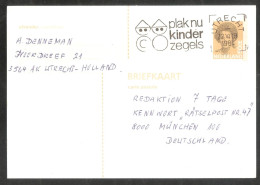 plak nu
kinder
zegels
UTRECHT
A DENNEMAN
21
3524 AK UTRECHT - HOLLAND.
BRIEFKAART
REDAKTION 7 TAGE
KENNWORT „RÄTSELPOST NR. 47"
8000 MÜNCHEN 100
DEUTSCHLAND.